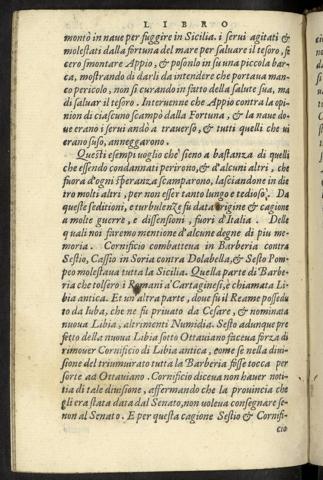 LIBRO
montò in naue per fuggire in Sicilia. i serui agitati &
molestati dalla fortuna del mare per saluare il tesoro, fe
cero smontare Appio, & posonlo in su una piccola bar=
ca, mostrando di darli da intendere che portaua man=
co pericolo, non si curando in fatto della salute sua, ma
di saluar il tesoro. Interuenne che Appio contra la opi=
nion di ciascuno scampò dalla Fortuna, & la naue do=
ue erano i serui andò a trauerso, & tutti quelli che ui
erano suso, annegarono.
Questi esempi uoglio che' sieno a bastanza di quelli
che essendo condannati perirono, & d'alcuni altri, che
fuora d'ogni speranza scamparono, lasciandone in die
tro molti altri, per non esser tanto lungo e tedioso. Da
queste seditioni, e turbulenze fu data origine & cagione
a molte guerre, e dissensioni, fuori d'Italia. Delle
quali noi faremo mentione d'alcune degne di piu me=
moria. Cornificio combatteua in Barberia contra
Sestio, Cassio in Soria contra Dolabella, & Sesto Pom=
peo molestaua tutta la Sicilia. Quella parte di Barbe=
ria che tolsero i Romani a' Cartaginesi, è chiamata Li=
bia antica. Et un'altra parte, doue fu il Reame possedu
to da Iuba, che ne fu priuato da Cesare, & nominata
nuoua Libia, altrimenti Numidia. Sestio adunque pre
fetto della nuoua Libia sotto Ottauiano faceua forza di
rimouer Cornificio di Libia antica, come se nella diui=
sione del triumuirato tutta la Barberia fosse tocca per
sorte ad Ottauiano. Cornificio diceua non hauer noti=
tia di tale diuisione, affermando che la prouincia che
gli era stata data dal Senato, non uoleua consegnare se=
non al Senato. E per questa cagione Sestio & Cornifi=
cio